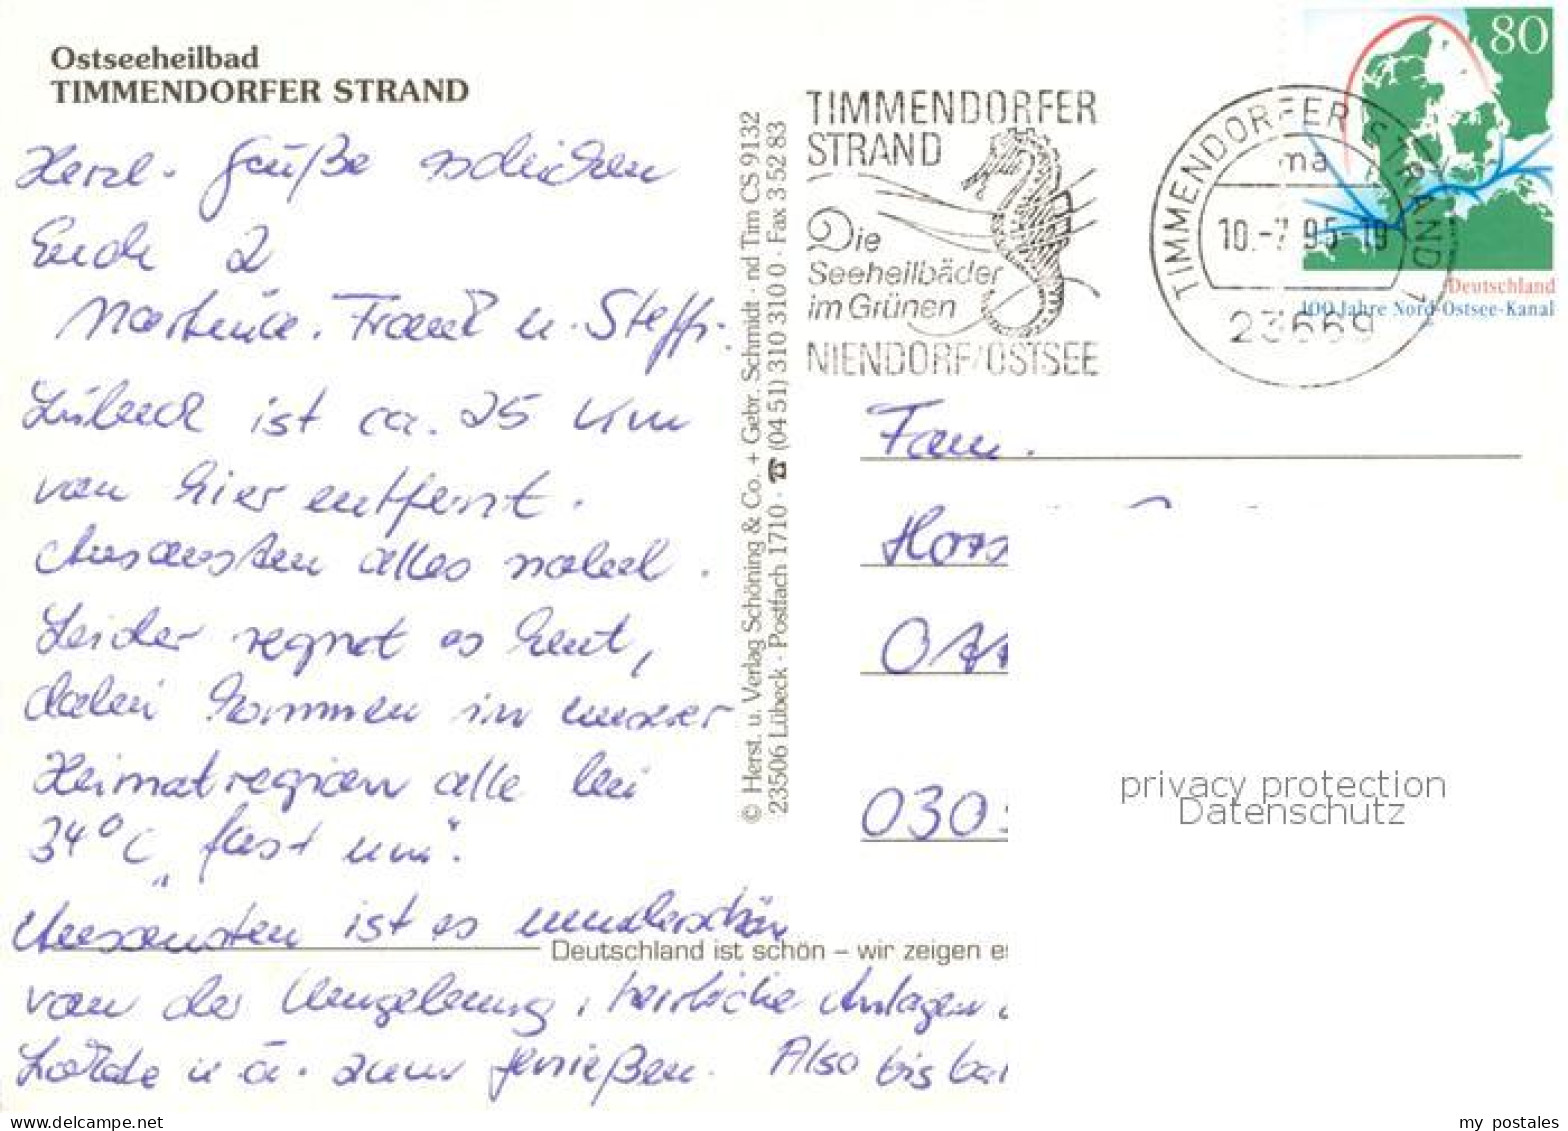 Ostseeheilbad
TIMMENDORFER STRAND
Herzl. Grüße schicken
Euch 2
Martina, Frank u. Steffi.
Lübeck ist ca. 25 km
von hier entfernt.
Ansonsten alles nobel.
Leider regnet es heut,
dabei kommen in unserer
Heimatregion alle bei
34°C „fast um“.
Ansonsten ist es wunderschön
von der Umgebung, herrliche Anlagen
u ä. zum genießen. Also bis bal
Deutschland ist schön – wir zeigen es
© Herst. u. Verlag Schöning & Co. + Gebr. Schmidt · nd Tim CS 9132
23506 Lübeck · Postfach 1710 · ☎ (04 51) 310 310 0 · Fax 3 52 83
TIMMENDORFER
STRAND
Die
Seeheilbäder
im Grünen
NIENDORF/OSTSEE
TIMMENDORFER STRAND 1
ma
10.-7.95-19
23669
80
Deutschland
100 Jahre Nord-Ostsee-Kanal
Fam.
Hors
Ott
030
privacy protection
Datenschutz
my postales